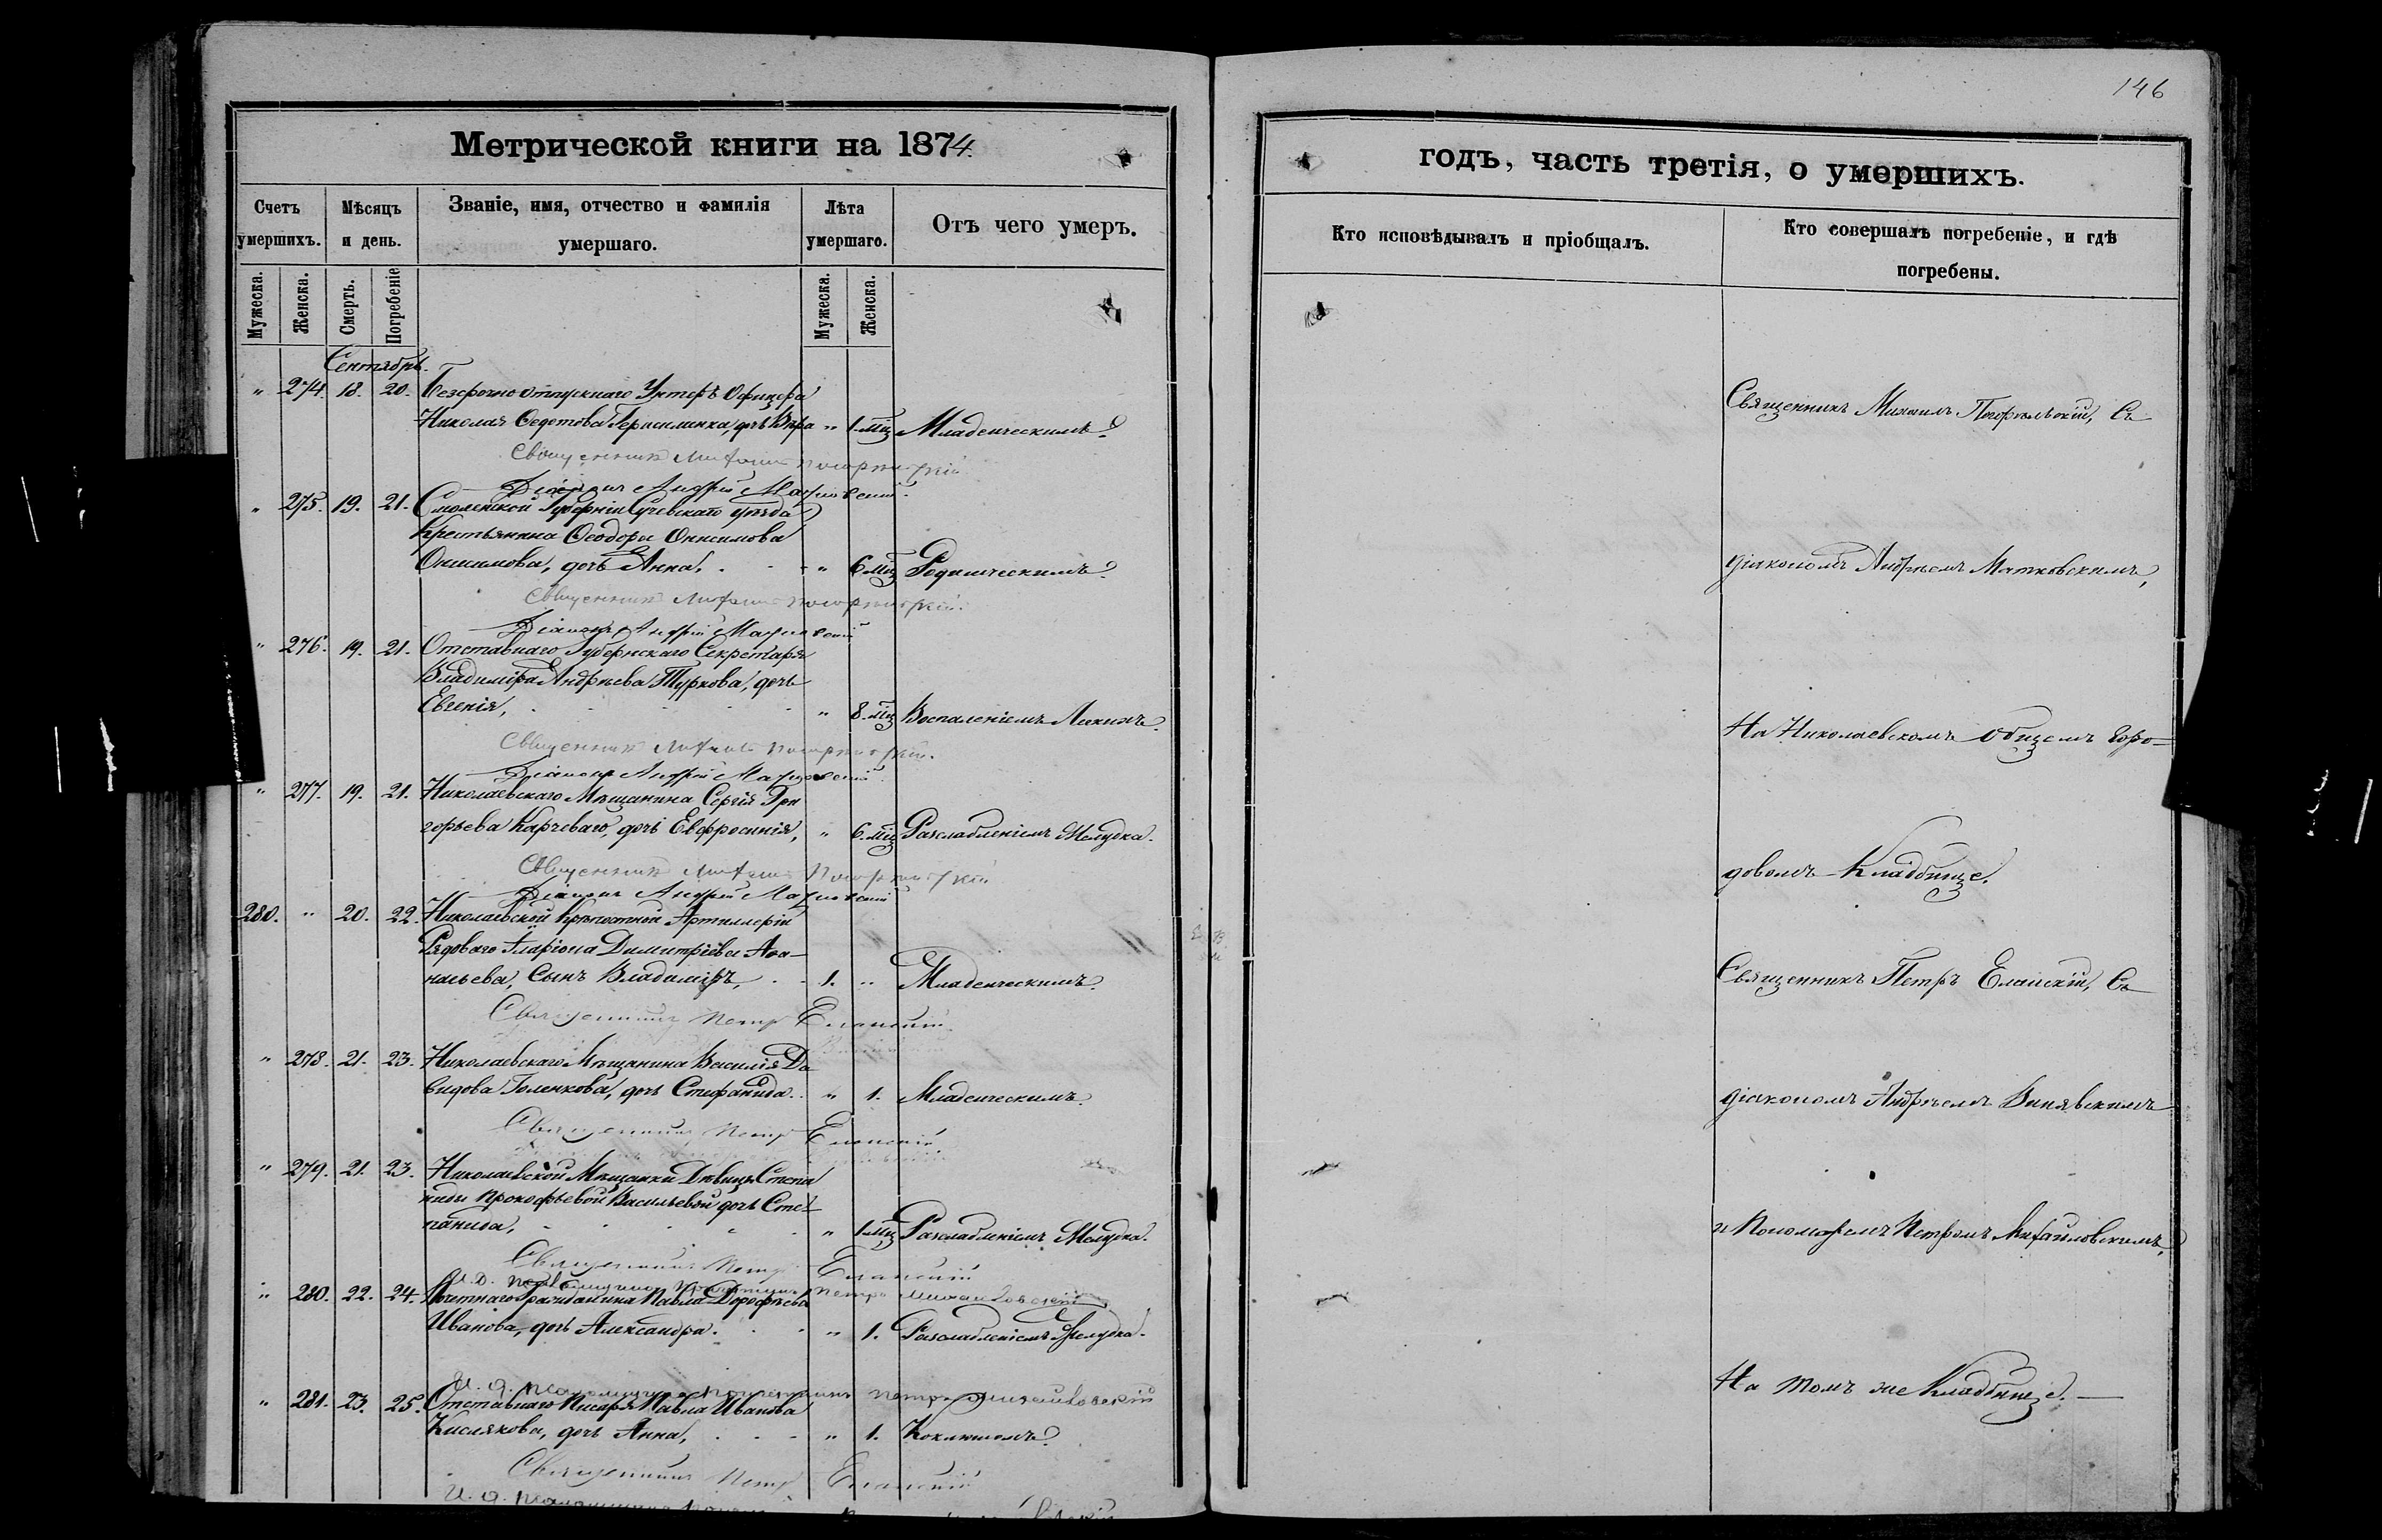 146
Метрической книги на 1874.
годъ, часть третія, о умершихъ.
Счетъ умершихъ.
Мѣсяцъ и день.
Званіе, имя, отчество и фамилія умершаго.
Лѣта умершаго.
Отъ чего умеръ.
Кто исповѣдывалъ и пріобщалъ.
Кто совершалъ погребеніе, и гдѣ погребены.
Мужеска. Женска. Смерть. Погребеніе Мужеска. Женска.
Сентябрь.
" 274. 18. 20. Безсрочно отпускнаго Унтеръ Офицера
Николая Федотова Герасимика, дочь Вѣра " 1. мѣц Младенческимъ.
Священникъ
Діаконъ Андрей
" 275. 19. 21. Смоленской Губерніи Сычевскаго уѣзда
Крестьянина Ѳеодора Онисимова
Онисимова, дочь Анна. " 6 мѣц Родимческимъ.
Священникъ
Діаконъ Андрей
" 276. 19. 21. Отставнаго Губернскаго Секретаря
Владиміра Андреева Туркова, дочь
Евгенія, " 8. мѣц Воспаленіемъ Легкихъ.
Священникъ
Діаконъ Андрей
" 277. 19. 21. Николаевскаго Мѣщанина Сергія Гри
горьева Карчеваго, дочь Евфросинія, " 6. мѣц Разслабленіемъ Желудка.
Священникъ
Діаконъ Андрей
280. " 20. 22. Николаевской Крѣпостной Артиллеріи
Рядоваго Иларіона Димитріева Аѳа-
насьева, Сынъ Владиміръ, 1. " Младенческимъ.
Священникъ Петръ Еланскій
" 278. 21. 23. Николаевскаго Мѣщанина Василія Да
видова Голенкова, дочь Стефанида. " 1. Младенческимъ.
Священникъ Петръ Еланскій
" 279. 21. 23. Николаевской Мѣщанки Дѣвицы Степа
ниды Прокофьевой Васильевой дочь Сте-
панида, " 1 мѣц Разслабленіемъ Желудка.
Священникъ Петръ Еланскій
И. д. Петръ Михайловскій
" 280. 22. 24. Почетнаго Гражданина Павла Дорофѣева
Иванова, дочь Александра. " 1. Разслабленіемъ Желудка.
И. д. Петръ Михайловскій
" 281. 23. 25. Отставнаго Писаря Павла Иванова
Кислякова, дочь Анна, " 1. Коклюшомъ.
Священникъ Петръ Еланскій
И. д.
Священникъ Михаилъ Погорѣльскій, Съ
діакономъ Андреемъ Матковскимъ,
На Николаевскомъ Общемъ Горо-
довомъ Кладбище.
Священникъ Петръ Еланскій, Съ
діакономъ Андреемъ Винявскимъ
и Пономаремъ Петромъ Михайловскимъ,
На томъ же Кладбище.